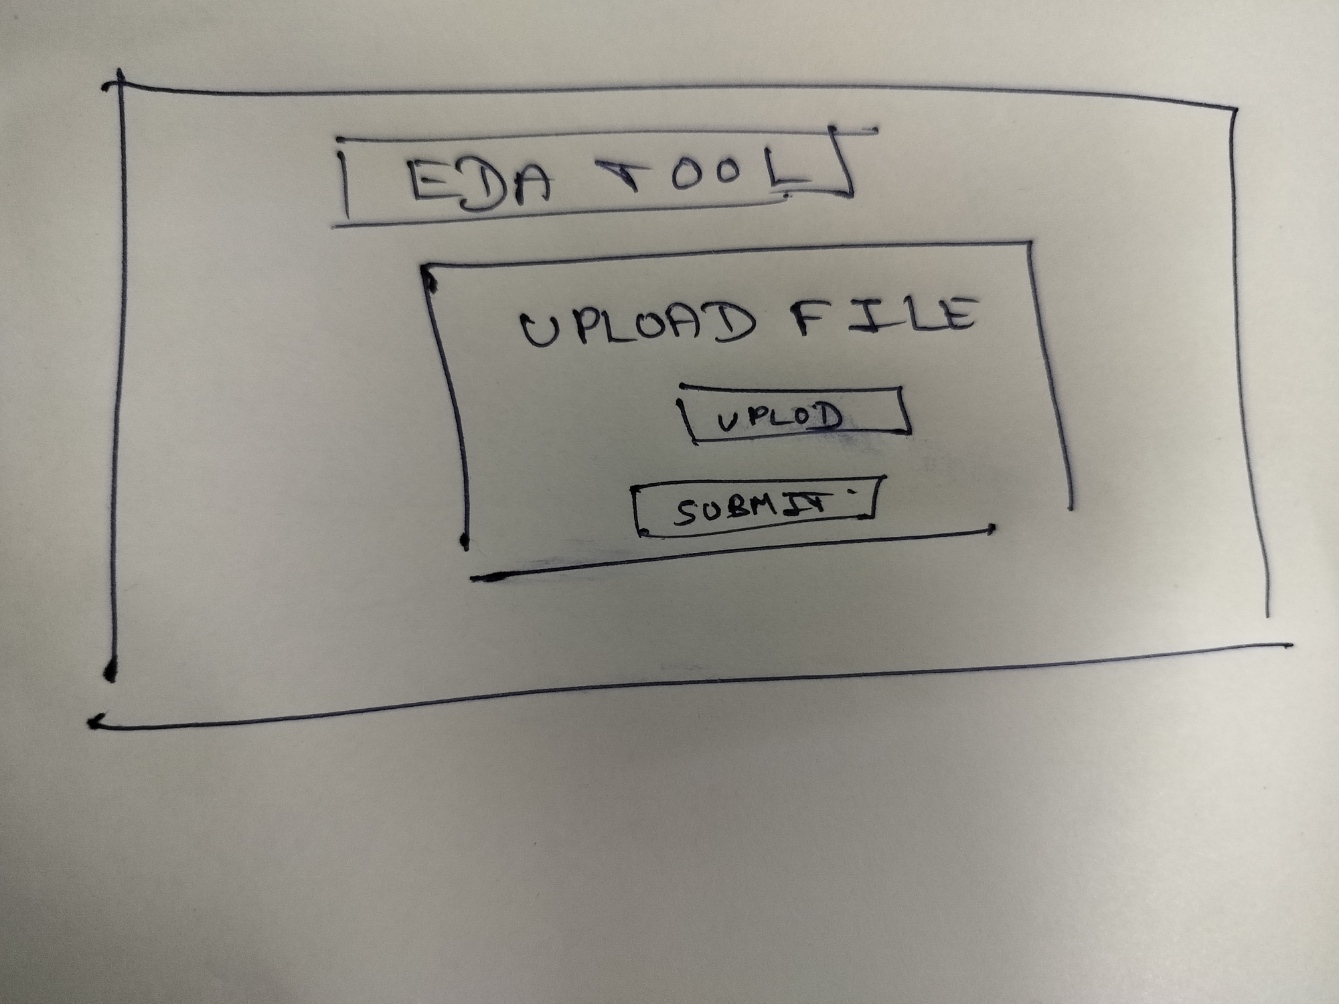 EDA TOOL
UPLOAD FILE
UPLOD
SUBMIT